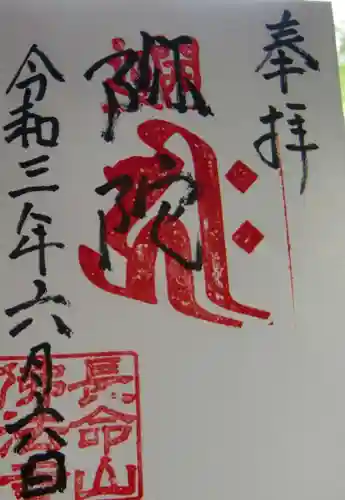 奉拝
彌陀
令和三年六月六日
長命山
佛法寺